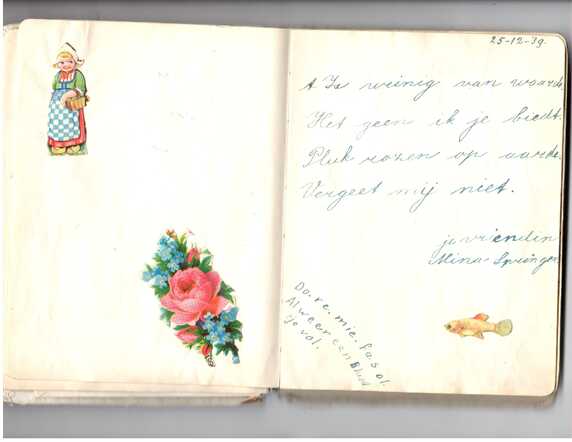 25-12-39.
't Is weinig van waarde,
Het geen ik je biedt.
Pluk rozen op aarde.
Vergeet mij niet.
je vriendin
Mina Springer
Do. re. mie. fa. s ol.
Al weer een Blad
je vol.